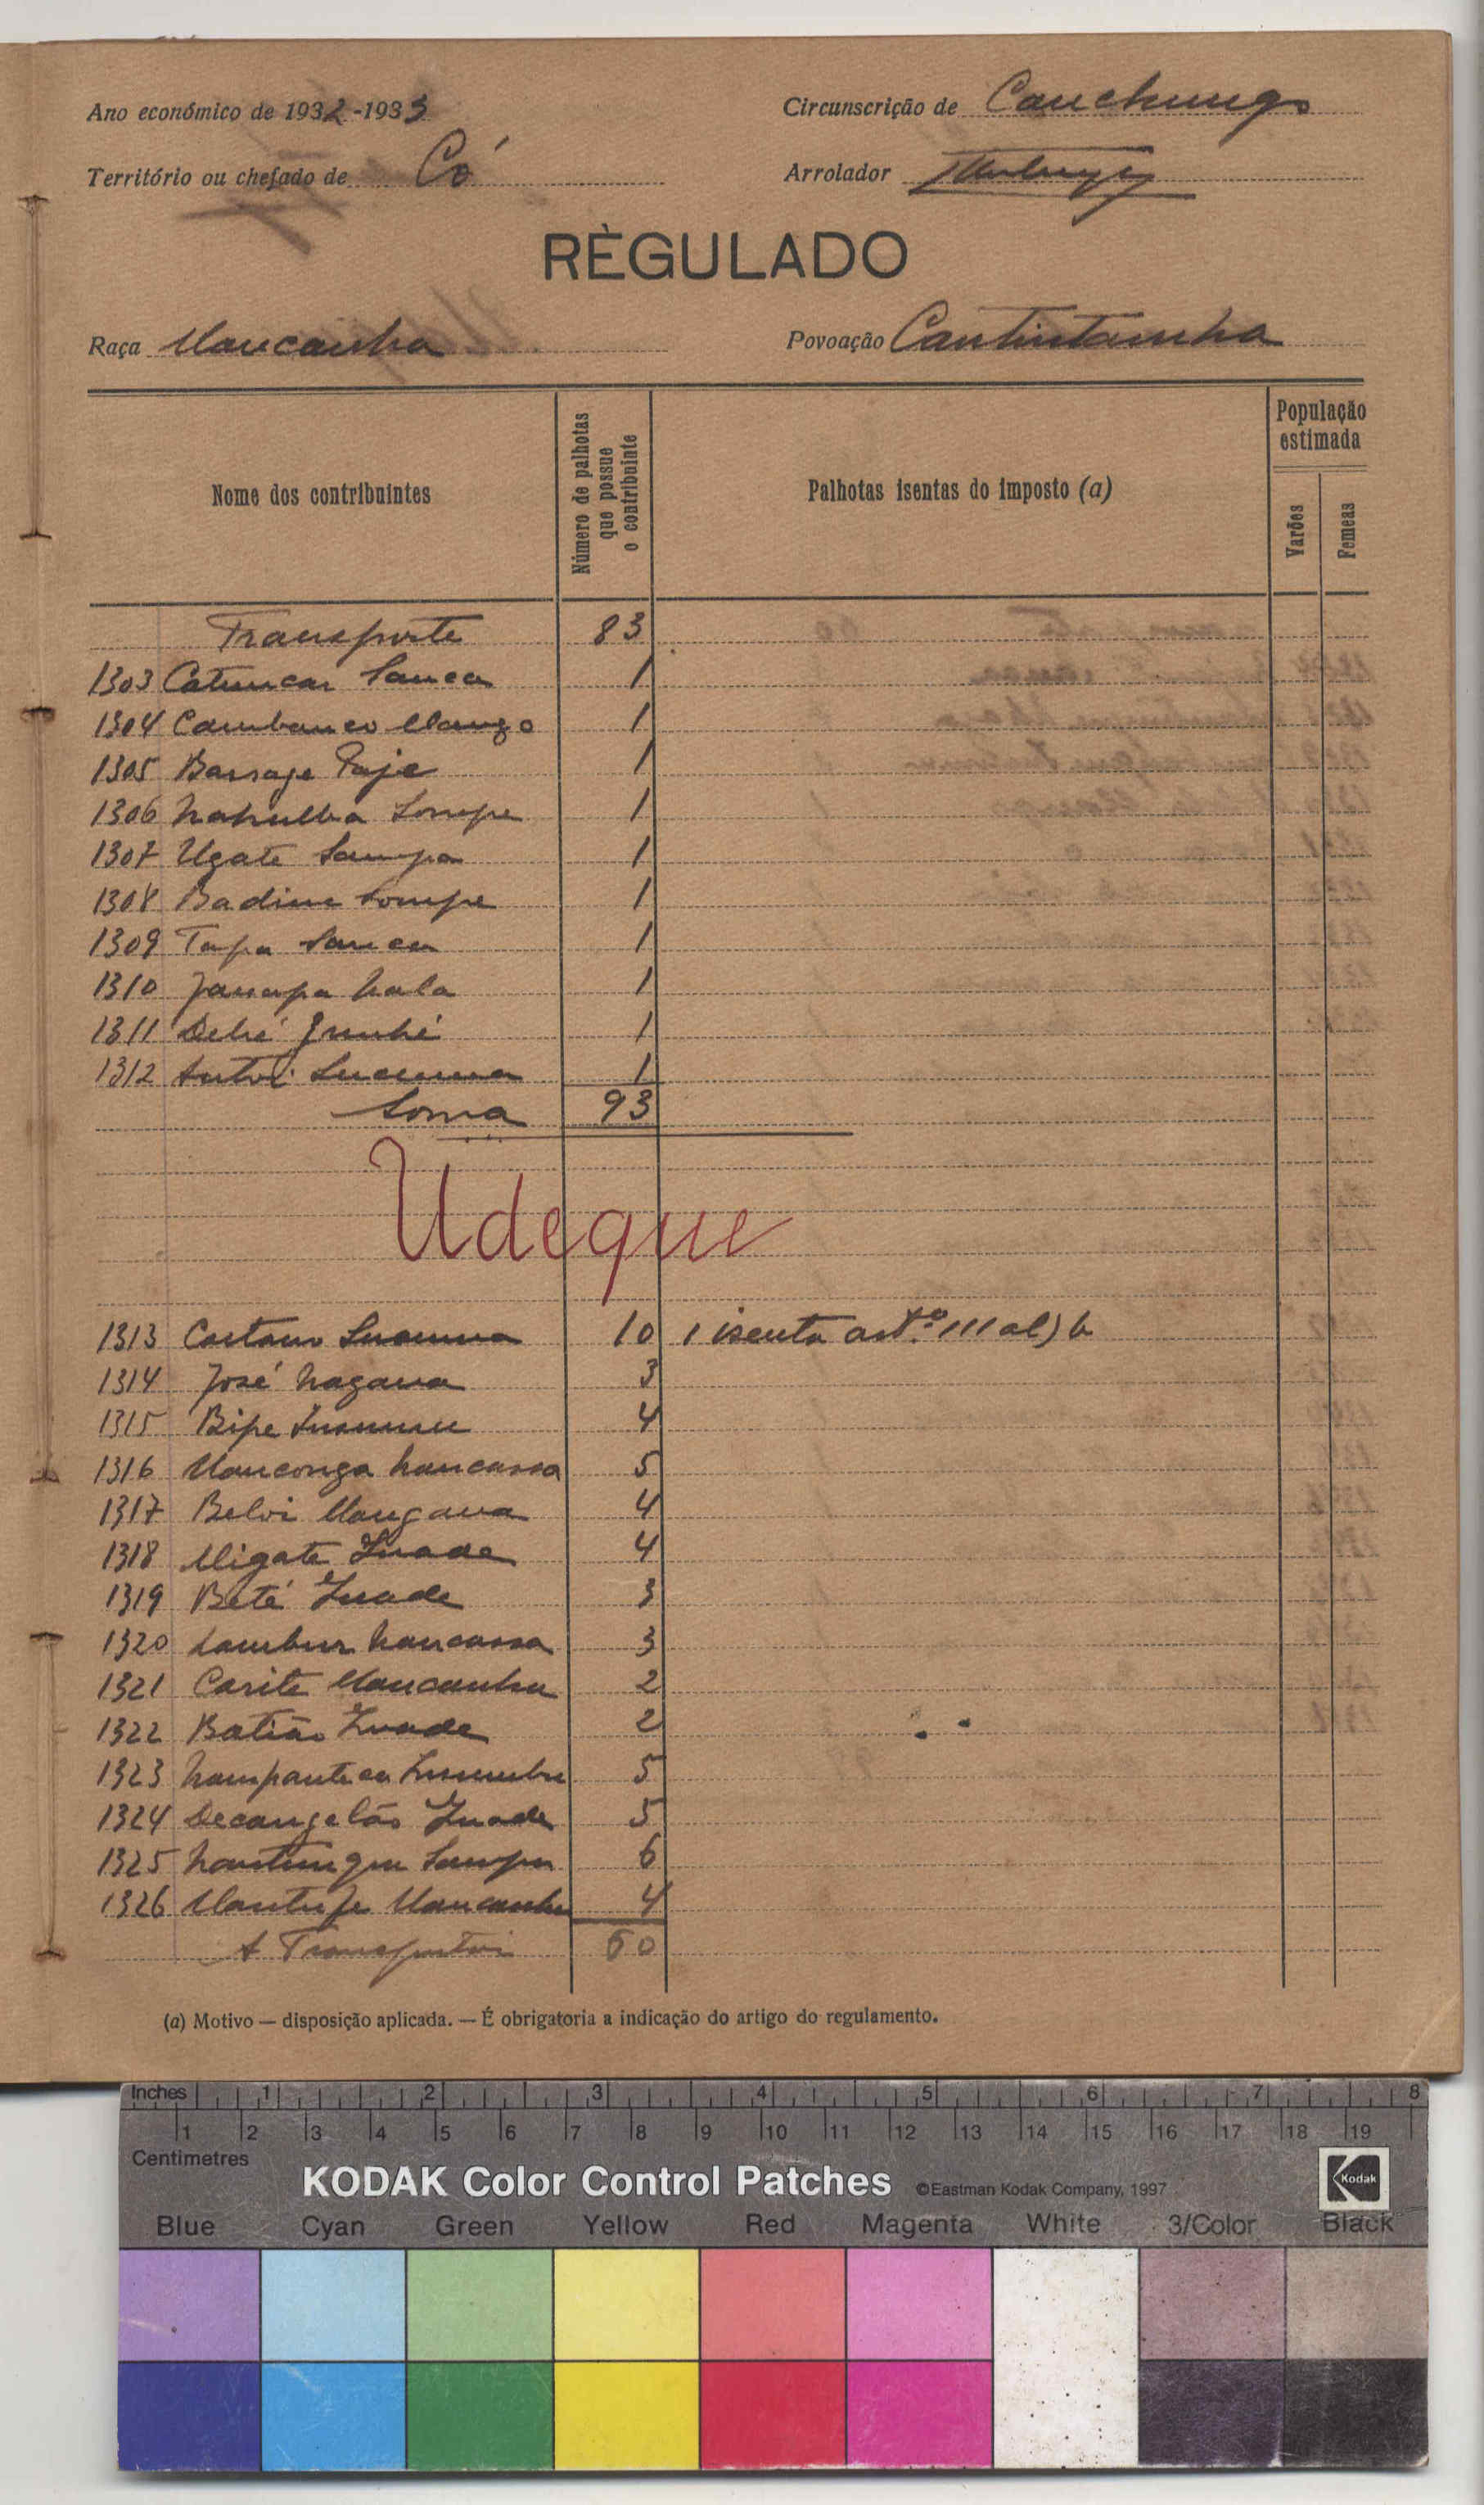 Ano económico de 1932-1933
Circunscrição de Canchungo
Território ou chefado de Có
Arrolador
RÈGULADO
Raça Mancanha
Povoação Cantintamha
Nome dos contribuintes
Número de palhotas que possue o contribuinte
Palhotas isentas do imposto (a)
População estimada
Varões
Femeas
Transporte 83
1303 Catuncar Sanca 1
1304 Cambanco Mango 1
1305 Bassage Paje 1
1306 Sompe 1
1307 Ugate Sampa 1
1308 Badinc Sompe 1
1309 Tapa Sanca 1
1310 Janapa Nala 1
1311 1
1312 1
Soma 93
Udeque
1313 Caetano 10 1 isenta art.º 111 al) b
1314 José Nagana 3
1315 Bipe 4
1316 Manconga Nancassa 5
1317 Belvi Mangana 4
1318 Migate 4
1319 Beté 3
1320 Lambur Nancassa 3
1321 Carite Mancanha 2
1322 Batião 2
1323 5
1324 Decangelão 5
1325 Sampa 6
1326 Mantufe Mancanha 4
A Transportar 60
(a) Motivo — disposição aplicada. — É obrigatoria a indicação do artigo do regulamento.
Inches 1 2 3 4 5 6 7 8
1 2 3 4 5 6 7 8 9 10 11 12 13 14 15 16 17 18 19
Centimetres
KODAK Color Control Patches ©Eastman Kodak Company, 1997 Kodak
Blue Cyan Green Yellow Red Magenta White 3/Color Black